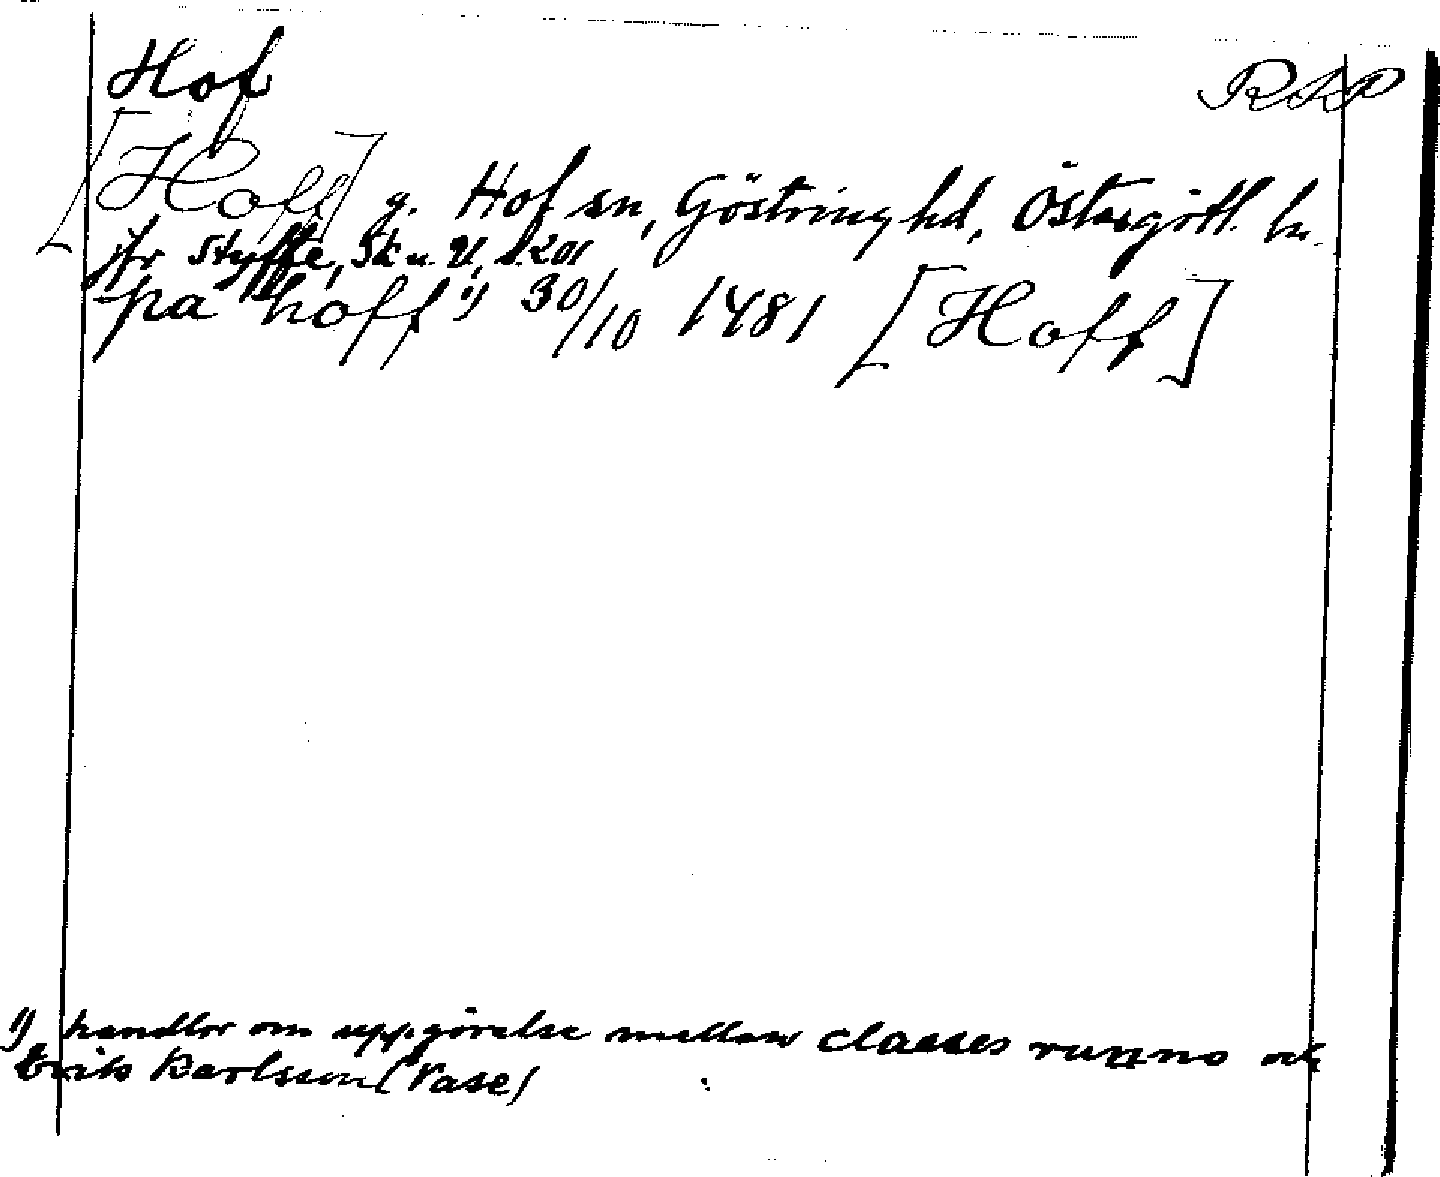 Hof RAP
[Hoff] g. Hof sn, Göstring hd, Östergötl. ln.
jfr Styffe, Sk u. U, s. 201
pa hoff 1) 30/10 1481 [Hoff]
1) handlar om uppgörelse mellan claases runno och
Erik Karlsson (Vase)